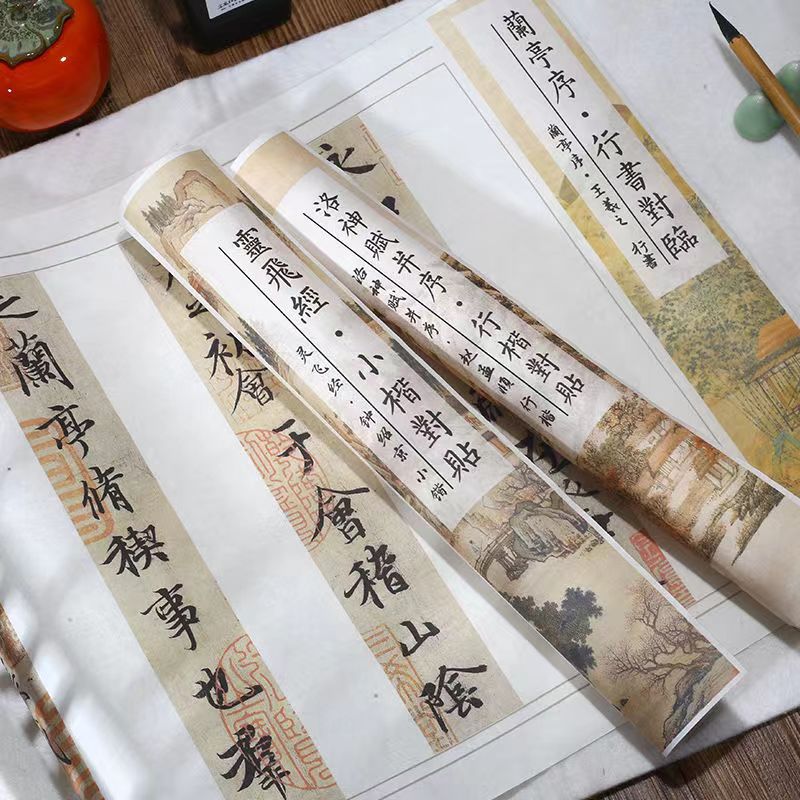 蘭亭序·行書對臨
蘭亭序·王羲之 行書
洛神賦并序·行楷對貼
洛神賦并序·赵孟頫 行楷
靈飛經·小楷對貼
灵飞经·钟绍京 小楷
初會于會稽山陰
之蘭亭脩稧事也羣